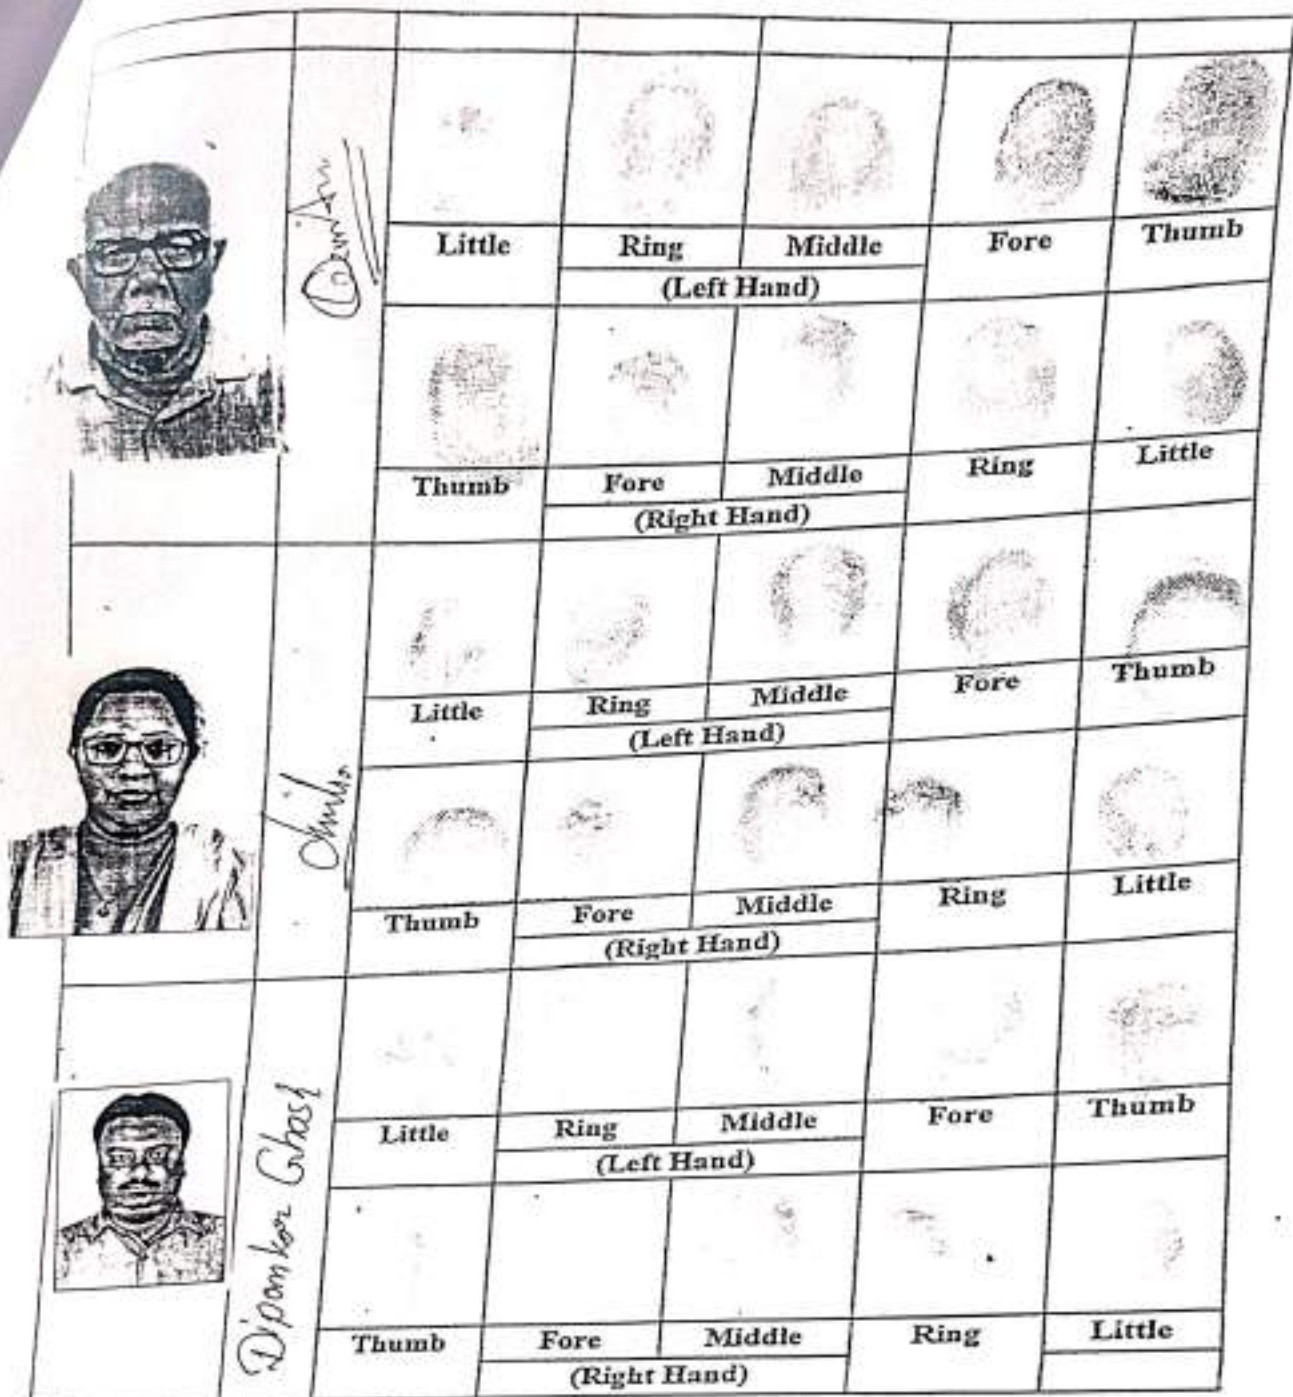 Little Ring Middle Fore Thumb
(Left Hand)
Thumb Fore Middle Ring Little
(Right Hand)
Little Ring Middle Fore Thumb
(Left Hand)
Thumb Fore Middle Ring Little
(Right Hand)
Dipankar Ghosh
Little Ring Middle Fore Thumb
(Left Hand)
Thumb Fore Middle Ring Little
(Right Hand)